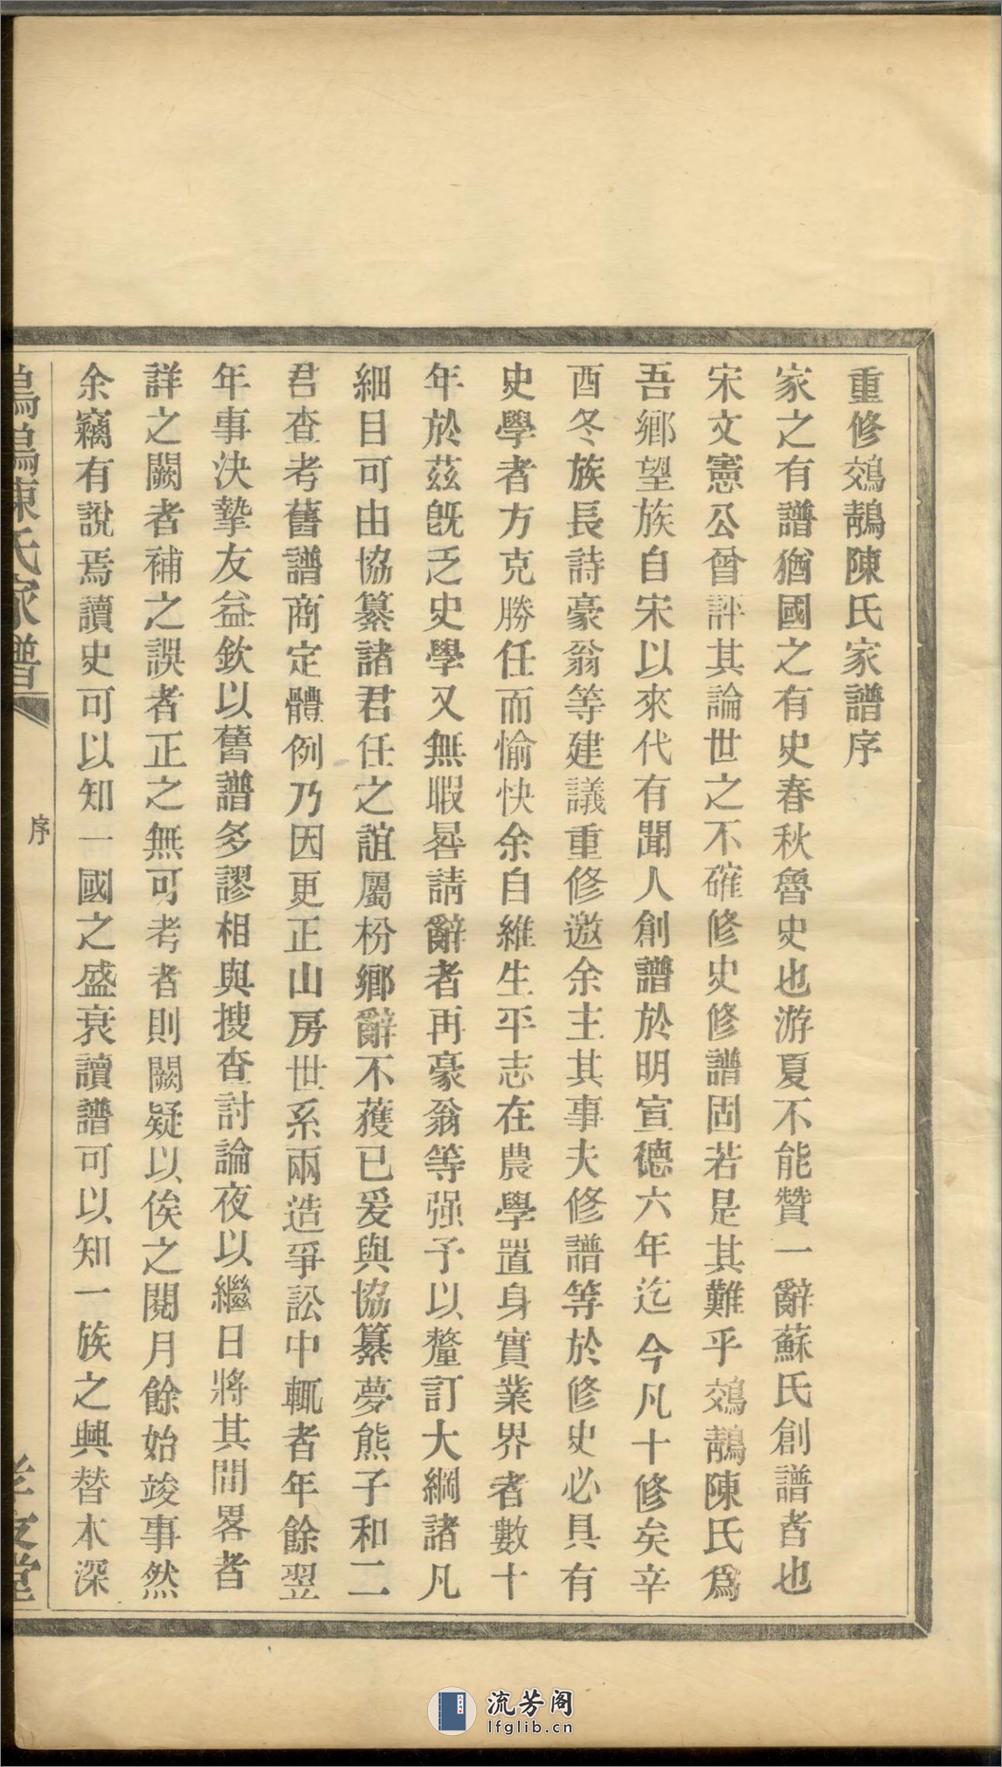 重修鵁鶄陳氏家譜序
家之有譜猶國之有史春秋魯史也游夏不能贊一辭蘇氏創譜者也
宋文憲公曾評其論世之不確修史修譜固若是其難乎鵁鶄陳氏爲
吾鄉望族自宋以來代有聞人創譜於明宣德六年迄今凡十修矣辛
酉冬族長詩豪翁等建議重修邀余主其事夫修譜等於修史必具有
史學者方克勝任而愉快余自維生平志在農學置身實業界者數十
年於茲旣乏史學又無暇晷請辭者再豪翁等强予以釐訂大綱諸凡
細目可由協纂諸君任之誼屬枌鄉辭不獲已爰與協纂夢熊子和二
君查考舊譜商定體例乃因更正山房世系兩造爭訟中輒者年餘翌
年事決摯友益欽以舊譜多謬相與搜查討論夜以繼日將其間畧者
詳之闕者補之誤者正之無可考者則闕疑以俟之閱月餘始竣事然
余竊有說焉讀史可以知一國之盛衰讀譜可以知一族之興替木深
陳氏家譜
序
友堂
流芳阁
lfglib.cn